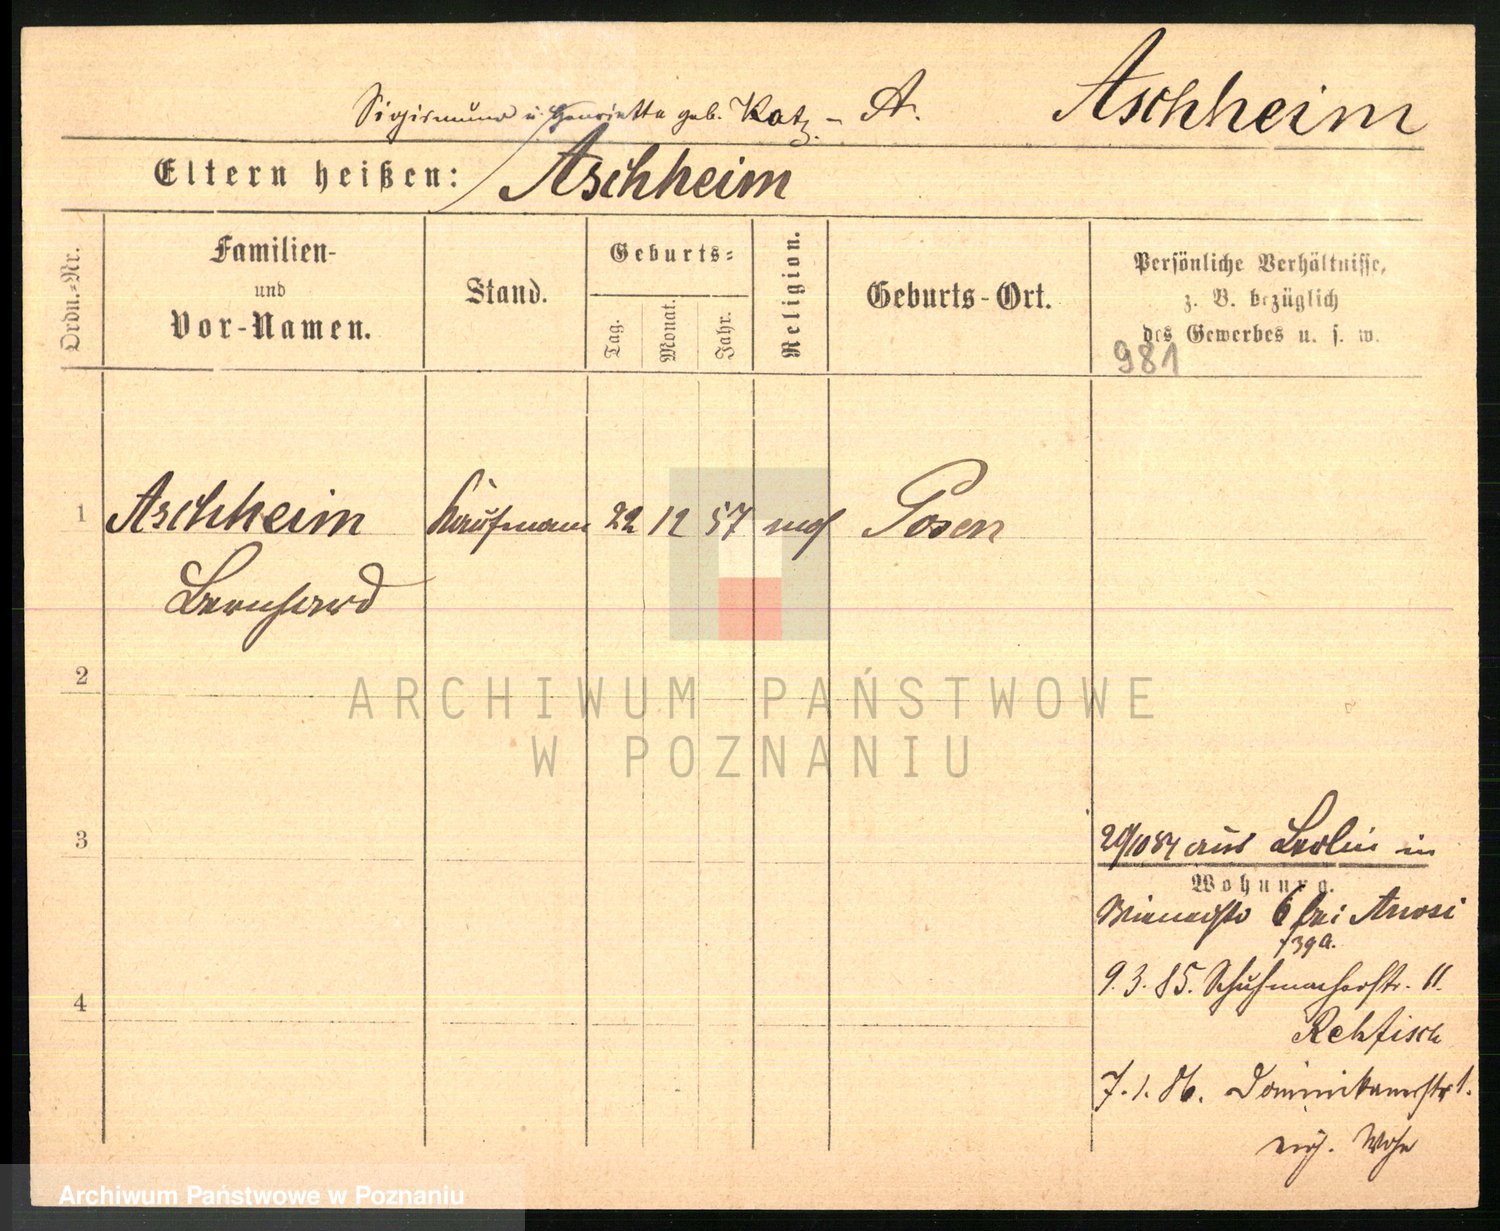 Aschheim
Sigismund u. Henriette geb. Katz - A.
Eltern heißen: Aschheim
Ordn.-Nr.
Familien-
und
Vor-Namen.
Stand.
Geburts-
Tag.
Monat.
Jahr.
Religion.
Geburts-Ort.
Persönliche Verhältnisse,
z. B. bezüglich
des Gewerbes u. s. w.
981
1 Aschheim Kaufmann 22 12 57 mos Posen
Bernhard
2
3
4
ARCHIWUM PAŃSTWOWE
W POZNANIU
10 84 aus Berlin in
Wohnung.
6 bei
9.3.85. Schuhmacherstr. 11.
Rehfisch
7.1.86. Dominikanerstr 1.
Archiwum Państwowe w Poznaniu